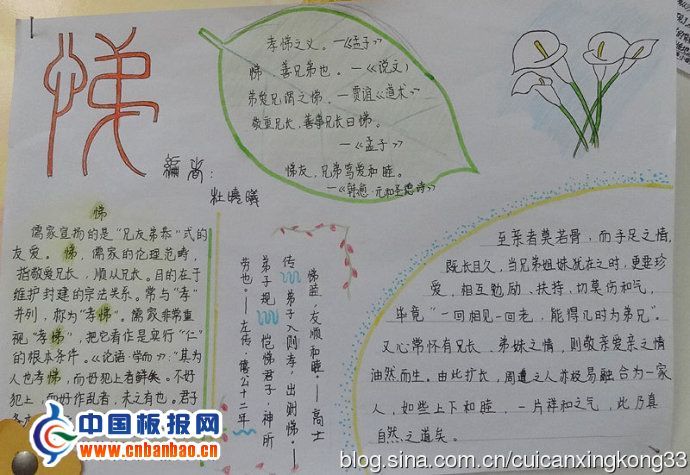 悌
孝悌之义。—《孟子》
悌 善兄弟也。—《说文》
弟爱兄谓之悌。—贾谊《道术》
敬重兄长,善事兄长曰悌。
—《孟子》
悌友,兄弟笃爱和睦。
—《韩愈·元和圣德诗》
编者:
杜晓曦
悌
儒家宣扬的是"兄友弟恭"式的
友爱。悌,儒家的伦理范畴,
指敬爱兄长,顺从兄长。目的在于
维护封建的宗法关系。常与"孝"
并列,称为"孝悌"。儒家非常重
视"孝悌",把它看作是实行"仁"
的根本条件。《论语·学而》:"其为
人也孝悌,而好犯上者鲜矣。不好
犯上,而好作乱者,未之有也。君子
悌睦,友顺和睦。—高士
传 弟子入则孝,出则悌。—
弟子规 恺悌君子,神所
劳也。—左传·僖公十二年
至亲者莫若骨,而手足之情,
既长且久,当兄弟姐妹犹在之时,更要珍
爱,相互勉励、扶持,切莫伤和气,
毕竟"一回相见一回老,能得几时为弟兄"。
又心常怀有兄长、弟妹之情,则敬亲爱亲之情
油然而生。由此扩长,周遭之人亦极易融合为一家
人,如些上下和睦,一片祥和之气,此乃真
自然之道矣。
中国板报网
www.cnbanbao.cn
blog.sina.com.cn/cuicanxingkong33